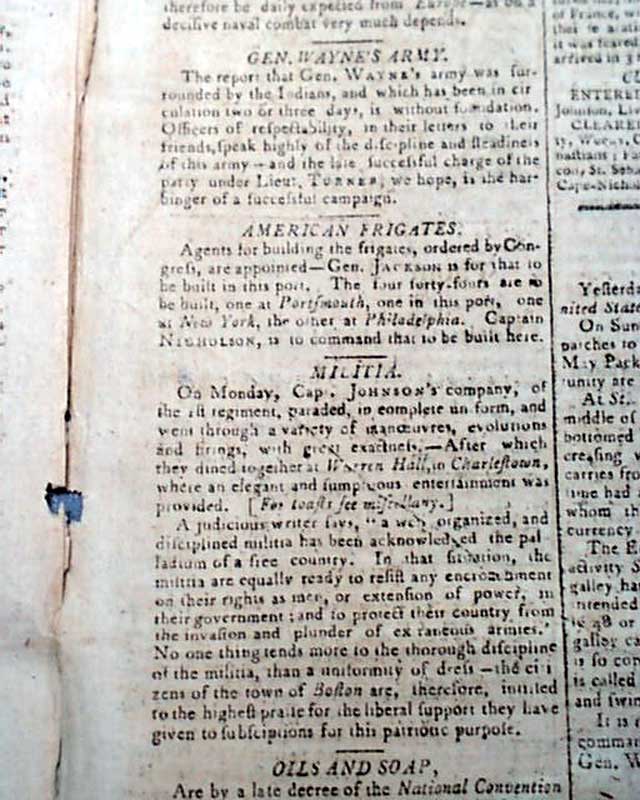 therefore be daily expected from Europe—as on a
decisive naval combat very much depends.
GEN. WAYNE'S ARMY.
The report that Gen. WAYNE's army was sur-
rounded by the Indians, and which has been in cir
culation two or three days, is without foundation.
Officers of respectability, in their letters to their
friends, speak highly of the discipline and steadiness
of this army—and the late successful charge of the
party under Lieut. TURNER, we hope, is the har-
binger of a successful campaign.
AMERICAN FRIGATES.
Agents for building the frigates, ordered by Con-
gress, are appointed—Gen. JACKSON is for that to
be built in this port. The four forty-fours are to
be built, one at Portsmouth, one in this port, one
at New York, the other at Philadelphia. Captain
NICHOLSON, is to command that to be built here.
MILITIA.
On Monday, Capt. JOHNSON's company, of
the 1st regiment, paraded, in complete uniform, and
went through a variety of manœuvres, evolutions
and firings, with great exactness.—After which
they dined together at Warren Hall, in Charlestown,
where an elegant and sumptuous entertainment was
provided. [For toasts see miscellany.]
A judicious writer says, "a well organized, and
disciplined militia has been acknowledged the pal
ladium of a free country. In that situation, the
militia are equally ready to resist any encroachment
on their rights as men, or extension of power, in
their government; and to protect their country from
the invasion and plunder of extraneous armies."
No one thing tends more to the thorough discipline
of the militia, than a uniformity of dress—the citi
zens of the town of Boston are, therefore, intitled
to the highest praise for the liberal support they have
given to subsciptions for this patriotic purpose.
OILS AND SOAP,
Are by a late decree of the National Convention
of France, w
arrived in
ENTERE
Johnson, Li
CLEARE
ty,
nathans; F
con, St. Seb
Cape-Nicho
Yesterda
nited State
On Sun
patches to
May Pack
tunity are
At St.
middle of
bottomed
creasing w
carries fro
time had
whom th
currency
The E
activity S
galley ha
intended
is 48 or
galley ca
is so con
is called
and swin
It is r
command
Gen. W